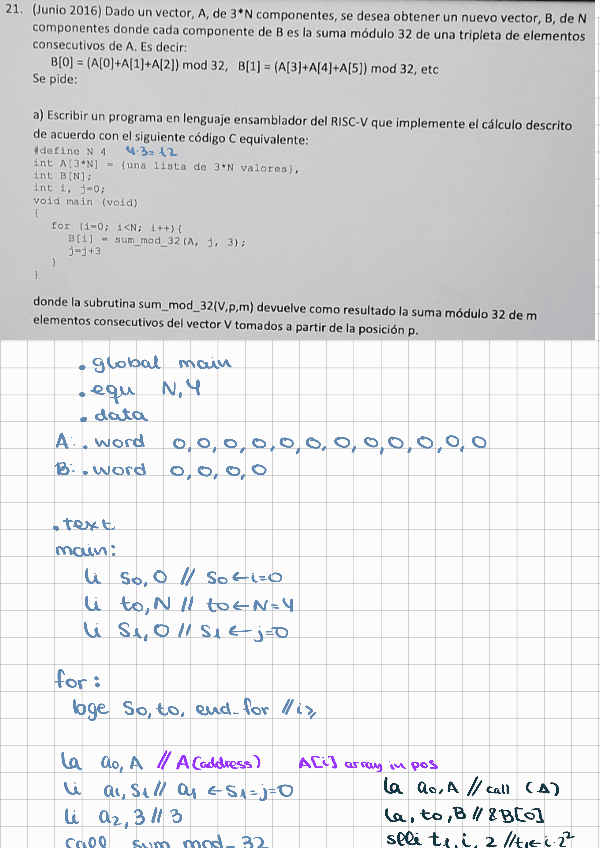 21. (Junio 2016) Dado un vector, A, de 3*N componentes, se desea obtener un nuevo vector, B, de N
componentes donde cada componente de B es la suma módulo 32 de una tripleta de elementos
consecutivos de A. Es decir:
B[0] = (A[0]+A[1]+A[2]) mod 32, B[1] = (A[3]+A[4]+A[5]) mod 32, etc
Se pide:
a) Escribir un programa en lenguaje ensamblador del RISC-V que implemente el cálculo descrito
de acuerdo con el siguiente código C equivalente:
#define N 4 4·3=12
int A[3*N] = {una lista de 3*N valores},
int B[N];
int i, j=0;
void main (void)
{
for (i=0; i<N; i++){
B[i] = sum_mod_32(A, j, 3);
j=j+3
}
}
donde la subrutina sum_mod_32(V,p,m) devuelve como resultado la suma módulo 32 de m
elementos consecutivos del vector V tomados a partir de la posición p.
.global main
.equ N,4
.data
A: .word 0,0,0,0,0,0,0,0,0,0,0,0
B: .word 0,0,0,0
.text
main:
li s0,0 // s0←i=0
li t0,N // t0←N=4
li s1,0 // s1←j=0
for:
bge s0,t0,end_for // i≥
la a0,A // A(address) A[i] array in pos
li a1,s1 // a1←s1=j=0 la a0,A // call (A)
li a2,3 // 3 la, t0,B // &B[0]
call sum_mod_32 slli t1,i,2 // t1←i·2²